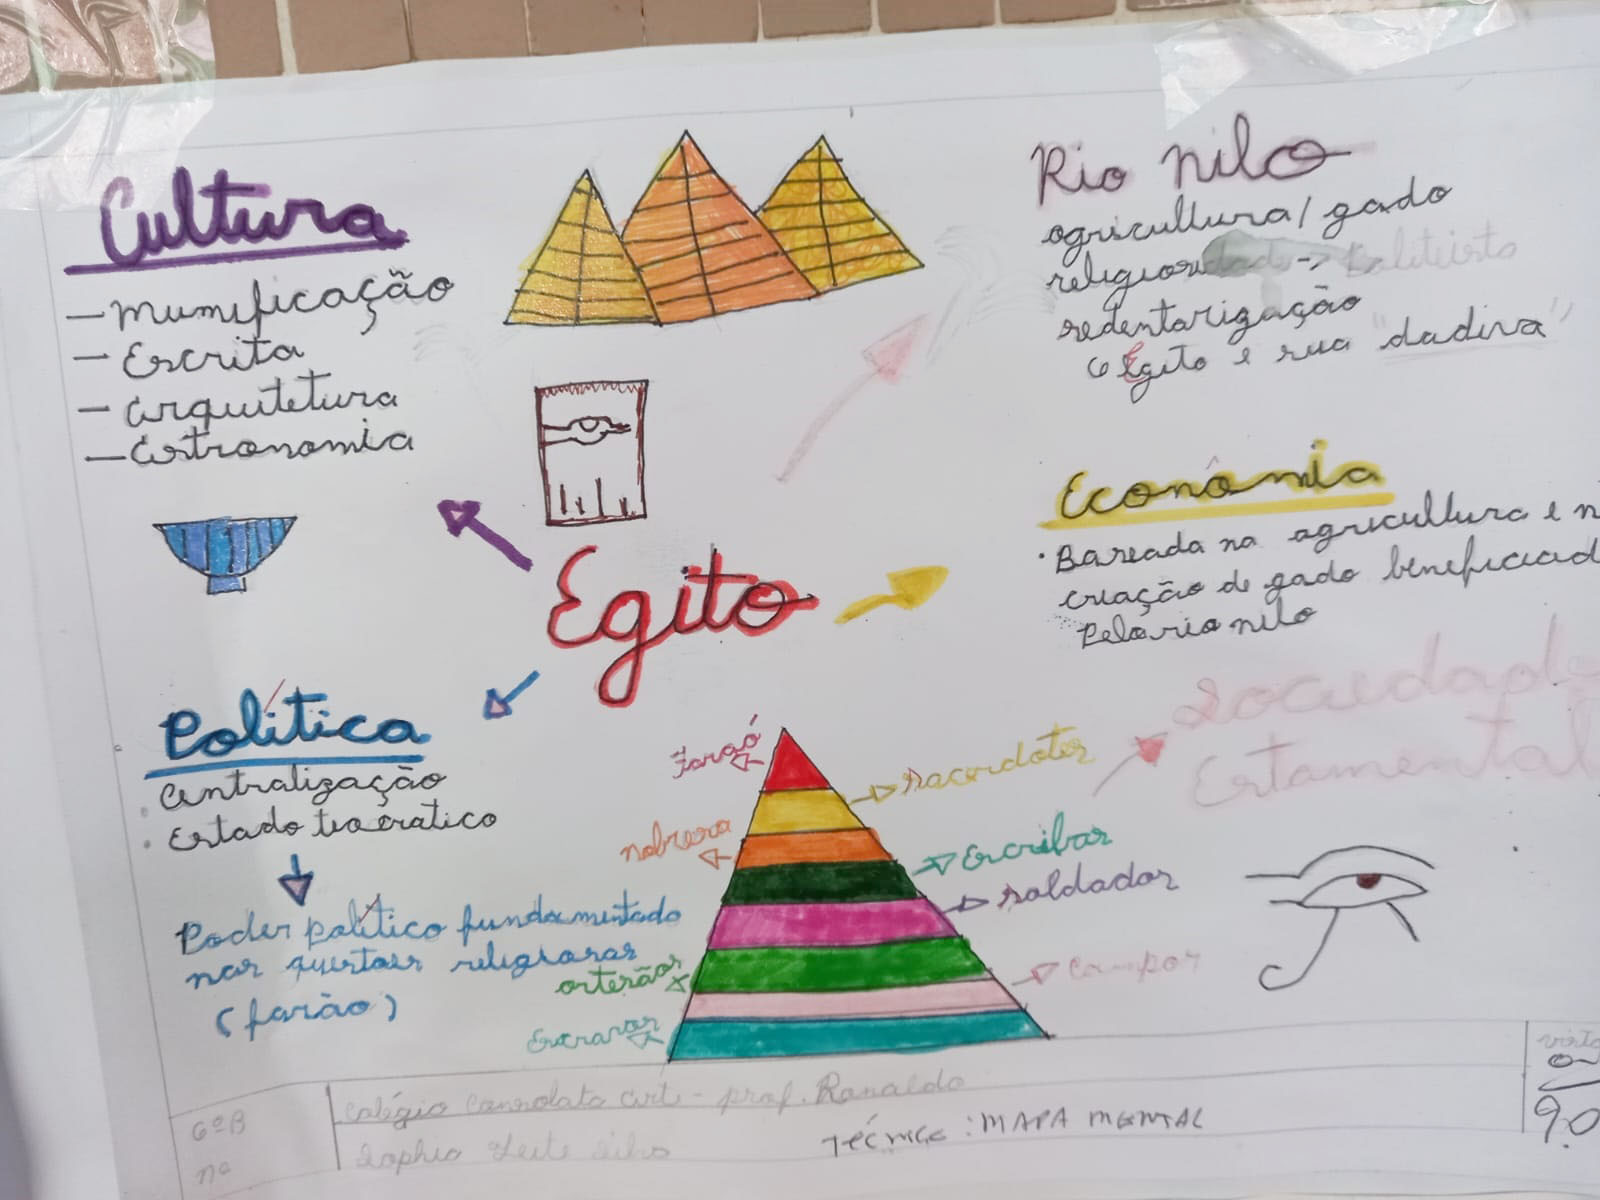 Cultura
— Mumificação
— Escrita
— arquitetura
— Astronomia
Rio nilo
agricultura/gado
religiosidade -> Politeista
sedentarização
Egito e sua "dadiva"
Egito
Econômia
• Baseada na agricultura e n
criação de gado beneficiad
Pelo rio nilo
Política
• Centralização
• Estado teocratico
Poder político fundamentado
nas questoes religiosas
(farão)
Sociedade
Estamental
Faraó
sacerdotes
nobreza
Escribas
soldados
artesãos
Campos
Escravos
6ºB
nº
Colégio art - prof. Ronaldo
Sophia Leite Silva
TÉCNICA: MAPA MENTAL
visto
9.0